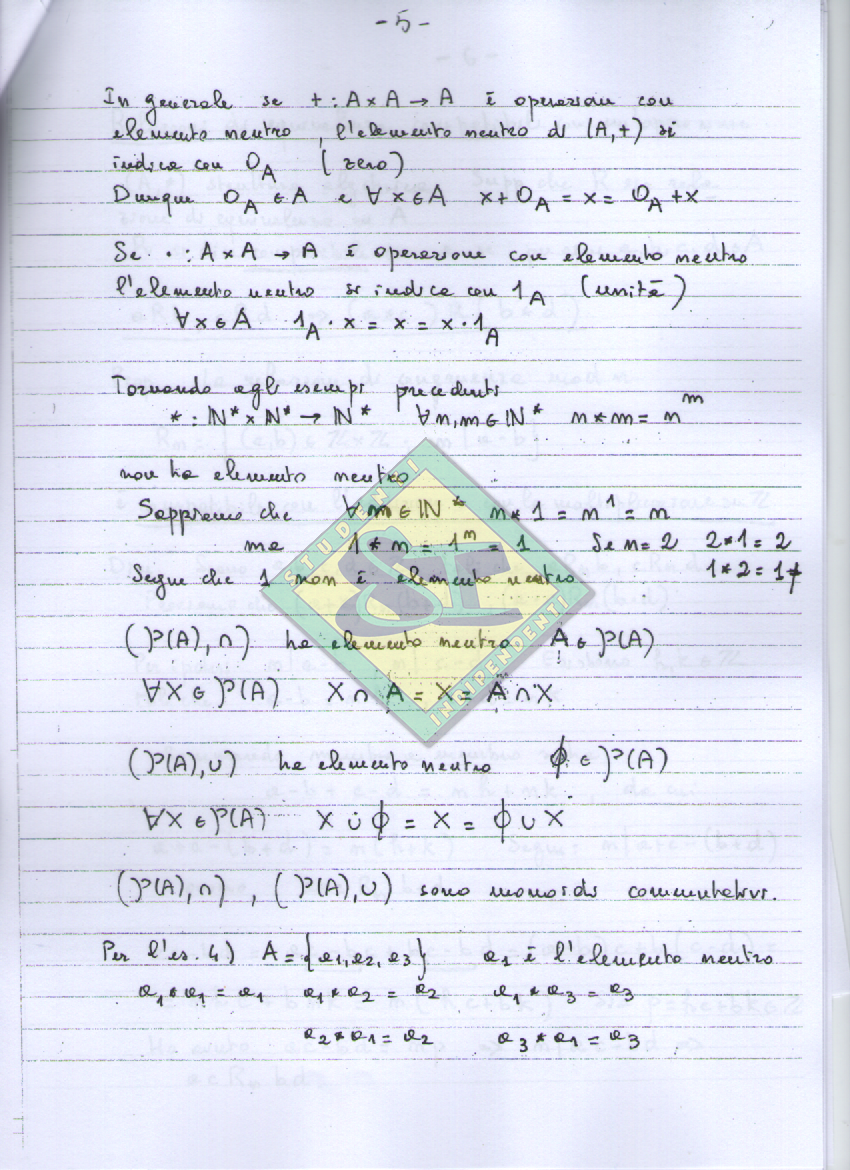 - 5 -
In generale se + : A × A → A è operazione con
elemento neutro, l'elemento neutro di (A,+) si
indica con 0_A (zero)
Dunque 0_A ∈ A e ∀ x ∈ A x + 0_A = x = 0_A + x
Se · : A × A → A è operazione con elemento neutro
l'elemento neutro si indica con 1_A (unità)
∀ x ∈ A 1_A · x = x = x · 1_A
Tornando agli esempi precedenti
* : ℕ* × ℕ* → ℕ* ∀ n, m ∈ ℕ* n * m = n^m
non ha elemento neutro
Sappiamo che ∀ n ∈ ℕ* n * 1 = n^1 = n
ma 1 * n = 1^n = 1 Se n = 2 2 * 1 = 2
1 * 2 = 1 ≠
Segue che 1 non è elemento neutro
(P(A), ∩) ha elemento neutro A ∈ P(A)
∀ X ∈ P(A) X ∩ A = X = A ∩ X
(P(A), ∪) ha elemento neutro ϕ ∈ P(A)
∀ X ∈ P(A) X ∪ ϕ = X = ϕ ∪ X
(P(A), ∩), (P(A), ∪) sono monoidi commutativi.
Per l'es. 4.) A = {a1, a2, a3} a1 è l'elemento neutro
a1 * a1 = a1 a1 * a2 = a2 a1 * a3 = a3
a2 * a1 = a2 a3 * a1 = a3
STUDENTI
SI
INDIPENDENTI